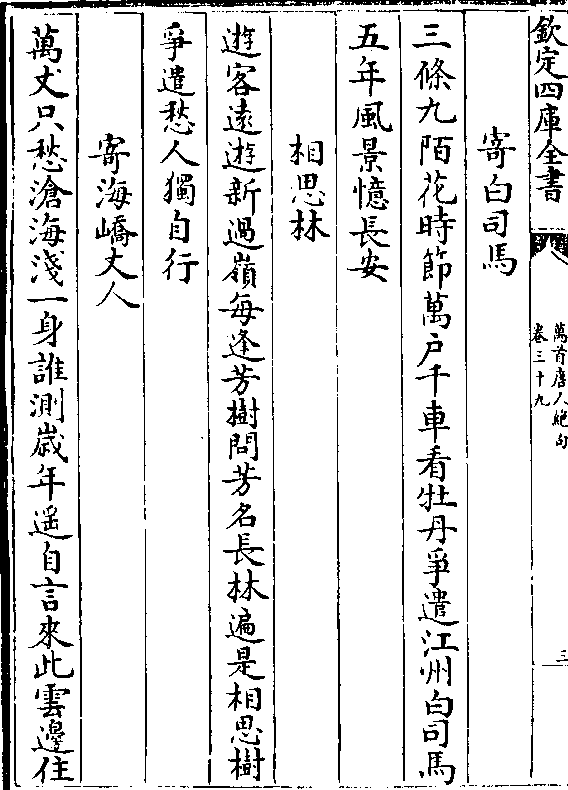 欽定四庫全書
萬首唐人絕句
卷三十九
三
寄白司馬
三條九陌花時節萬户千車看牡丹爭遣江州白司馬
五年風景憶長安
相思林
遊客遠遊新過嶺每逢芳樹問芳名長林遍是相思樹
爭遣愁人獨自行
寄海嶠丈人
萬丈只愁滄海淺一身誰測歳年遥自言來此雲邊住